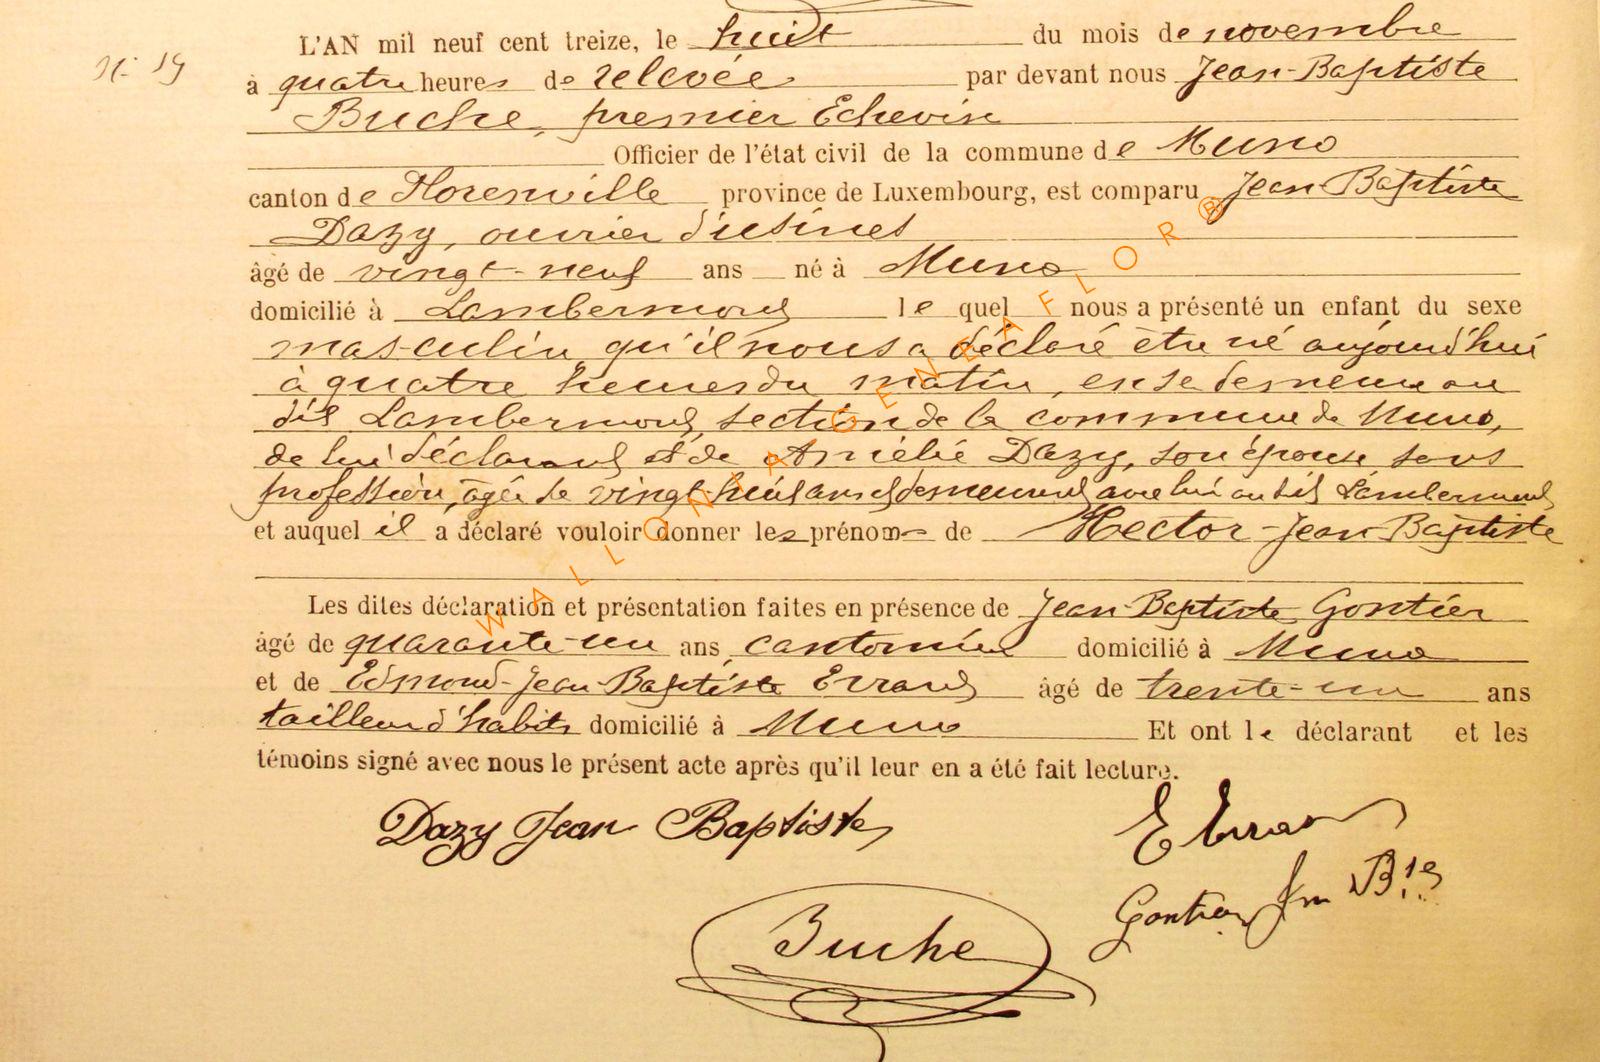 L'AN mil neuf cent treize, le huit du mois de novembre
N: 19
à quatre heures de relevée par devant nous Jean-Baptiste
Buche, premier Echevin
Officier de l'état civil de la commune de Muno
canton de Florenville province de Luxembourg, est comparu Jean-Baptiste
Dazy, ouvrier d'usines
âgé de vingt-neuf ans né à Muno
domicilié à Lambermont le quel nous a présenté un enfant du sexe
masculin qu'il nous a déclaré être né aujourd'hui
à quatre heures du matin, en sa demeure au
dit Lambermont, section de la commune de Muno,
de lui déclarant et de Amélie Dazy, son épouse sans
profession, âgée de vingt huit ans et demeurant avec lui au dit Lambermont
et auquel il a déclaré vouloir donner les prénoms de Hector-Jean-Baptiste
Les dites déclaration et présentation faites en présence de Jean-Baptiste Gontier
âgé de quarante-un ans, cantonnier domicilié à Muno
et de Edmond-Jean-Baptiste Errard âgé de trente-un ans
tailleur d'habits domicilié à Muno Et ont le déclarant et les
témoins signé avec nous le présent acte après qu'il leur en a été fait lecture.
Dazy Jean Baptiste
E Errard
Gontier Jn Bte
Buche
WALLONIA GENEAFLOR®